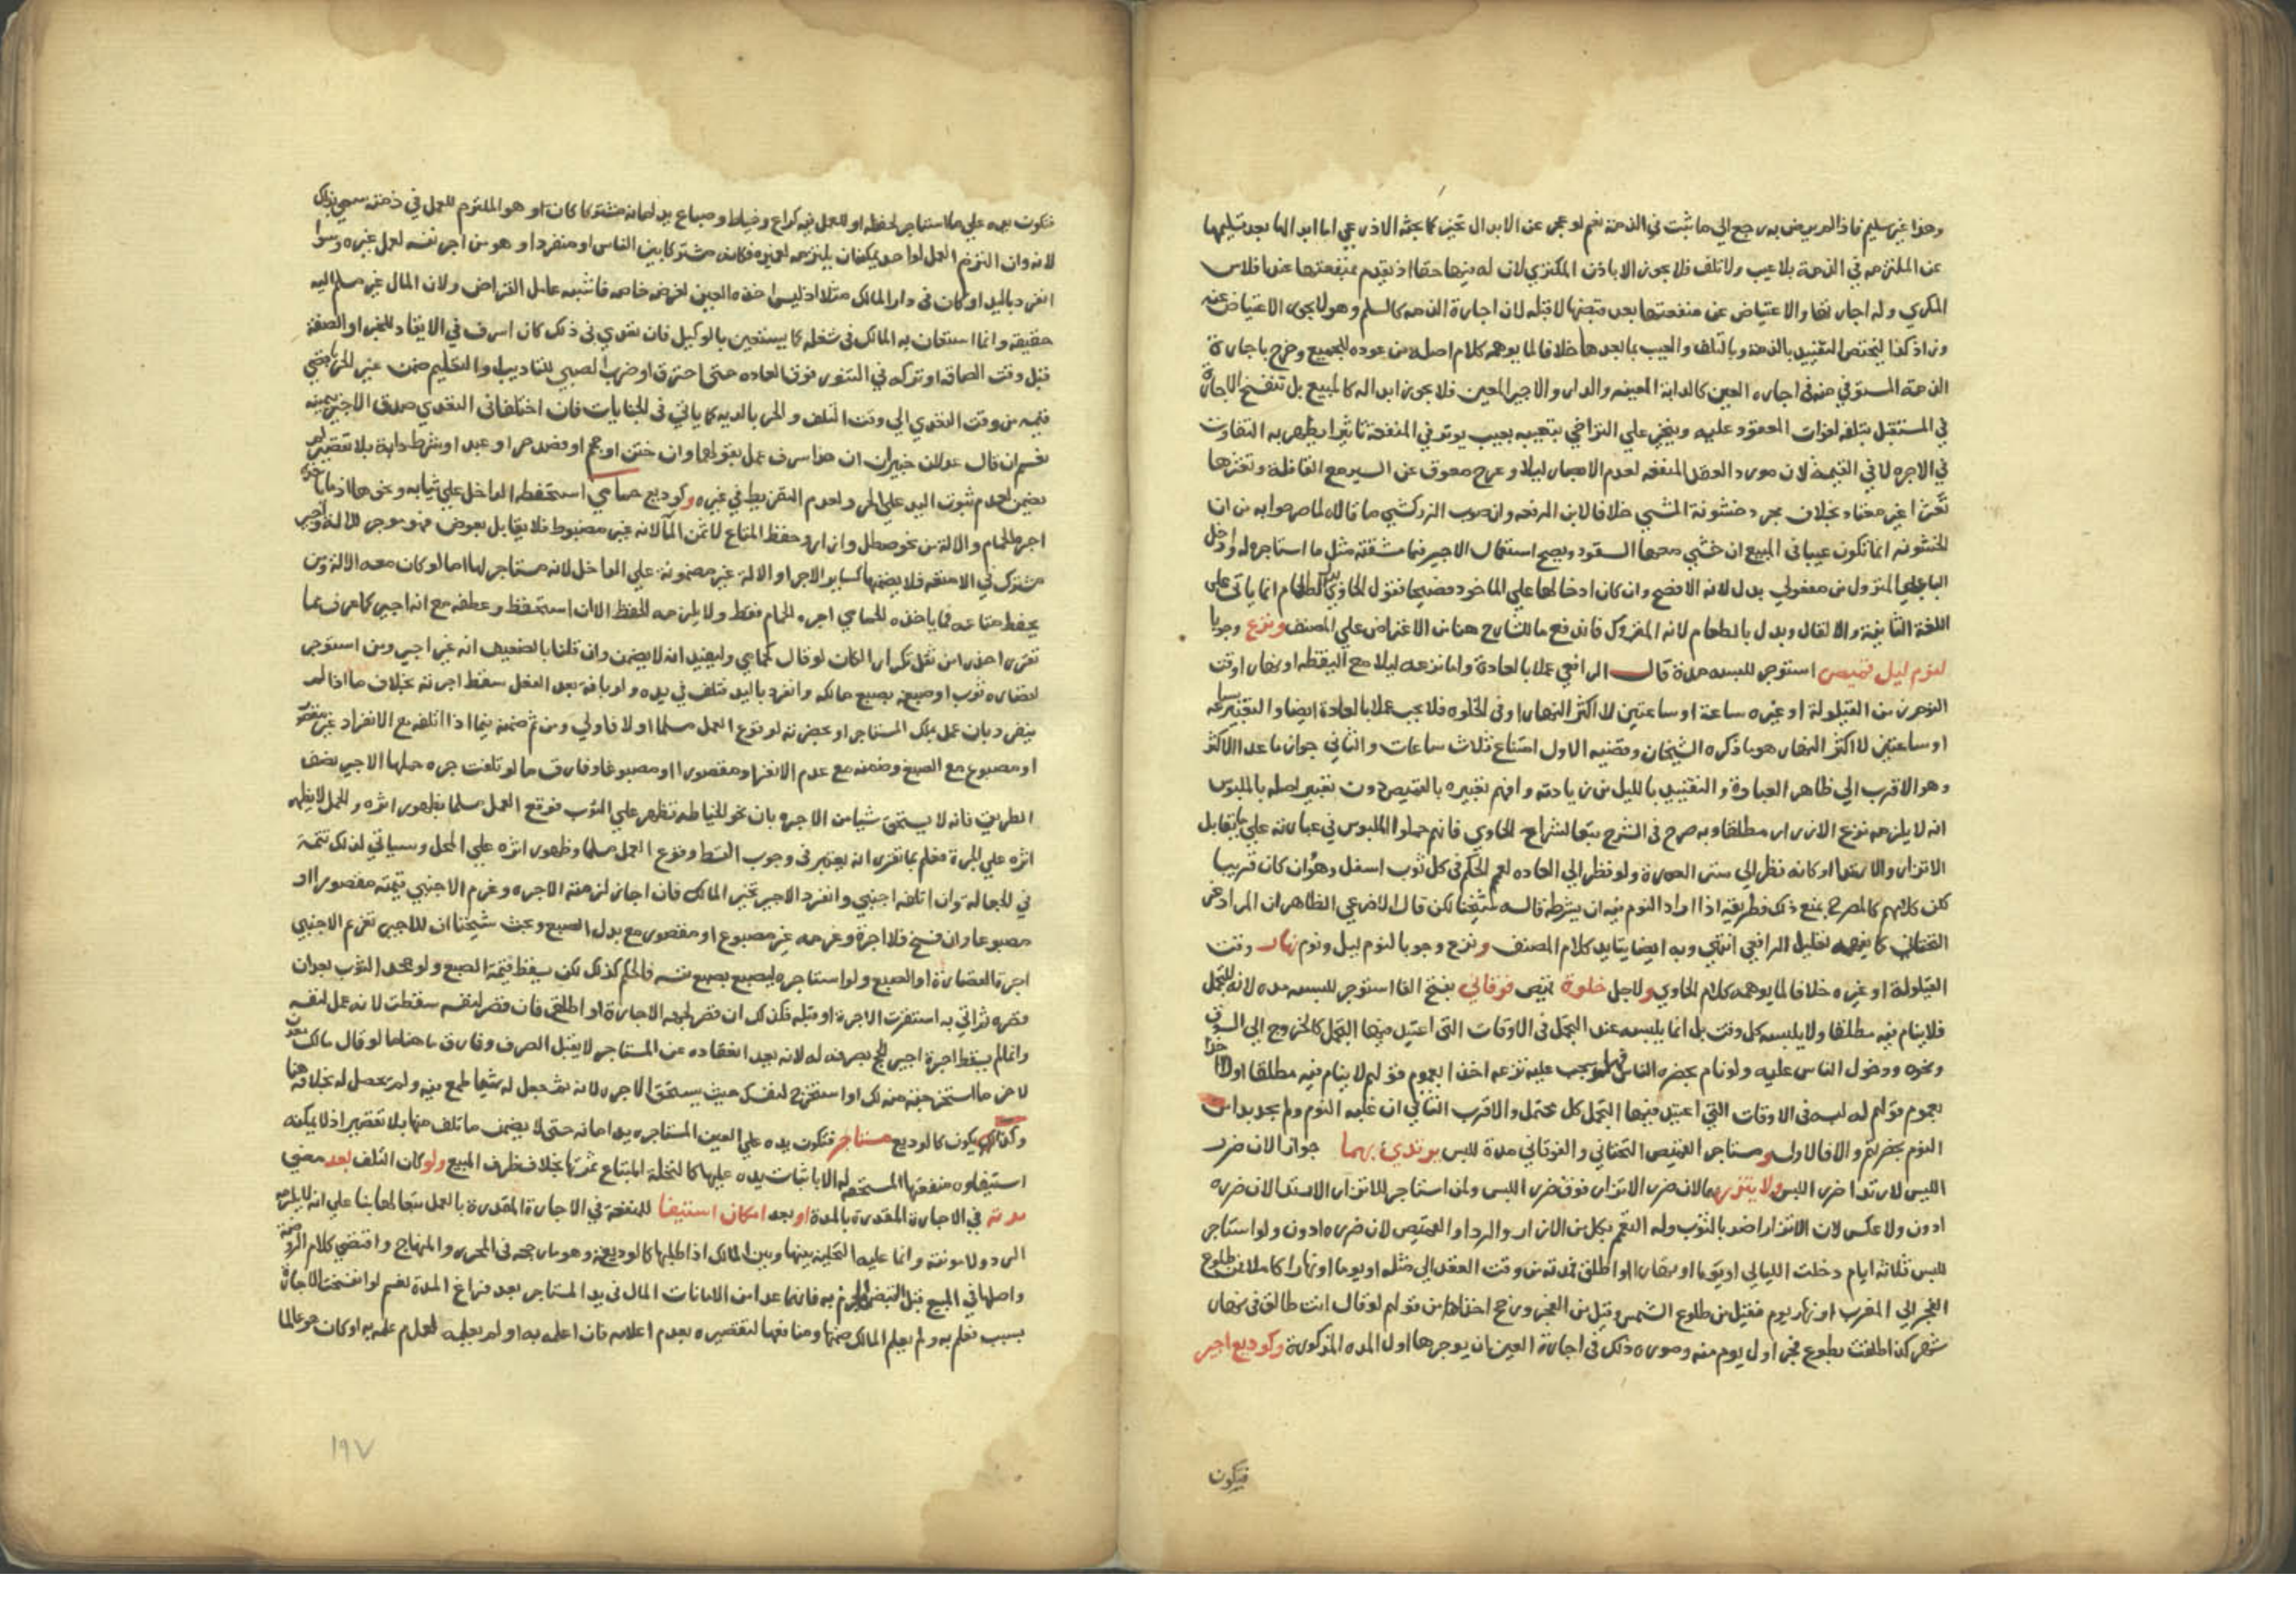 وهذا غير سليم فاذا لم يرض به رجع الي ما ثبت في الذمة نعم لو عجز عن الابدال تخير كما بحثه الاذرعي اما ابدالها بعد تسليمها
عن الملتزمه في الذمة بلا عيب ولا تلف فلا يجوز الا باذن المكتري لان له فيها حقا اذ يقدم بمنفعتها عند افلاس
المكري وله اجارتها والاعتياض عن منفعتها بعد قبضها لا قبله لان اجارة الذمه كالسلم وهو لا يجوز الاعتياض عنه
الذمة المستوفي منه في اجارة العين كالدابة المعينه والدار والاجير المعين فلا يجوز ابداله كالمبيع بل تنفسخ الاجارة
في المستقبل بتلفه لفوات المعقود عليه ويتخير علي التراخي بتعيبه بعيب يوثر في المنفعة تاثيرا يظهر به التفاوت
في الاجرة لا في القيمة لان مورد العقد المنفعه لعدم الابصار ليلا وعرج معوق عن السير مع القافلة وتعثرها
تعثرا غير معتاد بخلاف مجرد خشونة المشي خلافا لابن الرفعه وان صوب الزركشي ما قاله لما صرحوا به من ان
اللغة الثانية والا لقال وبدل بالطعام لانه المتروك فاندفع ما للشارح هنا من الاعتراض علي المصنف ونزع وجوبا
لنوم ليل قميص استوجر للبسه مدة قال الرافعي عملا بالعادة واما نزعه ليلا مع اليقظه او نهارا وقت
النوم من القيلولة او غيره ساعة او ساعتين لا اكثر النهار او في الخلوه فلا يجب عملا بالعادة ايضا والتعبير بساعه
او ساعتين لا اكثر النهار هو ما ذكره الشيخان وقضيه الاول امتناع ثلاث ساعات والثاني جواز ما عدا الاكثر
وهو الاقرب الي ظاهر العبارة والتقييد بالليل من زيادته وافهم تعبيره بالقميص دون تعبير اصله بالملبوس
انه لا يلزمه نزع الازار مطلقا وبه صرح في الشرح تبعا لشراح الحاوي فانهم حملوا الملبوس في عبارته علي ما يقابل
الاتزار والارتدا وكانه نظر الي ستر العورة ولو نظر الي العاده لعم الحكم في كل ثوب اسفل وهو وان كان قريبا
التحتاني كما يفهمه تعليل الرافعي انتهي وبه ايضا يتايد كلام المصنف ونزع وجوبا لنوم ليل ونوم نهار وقت
القيلولة او غيره خلافا لما يوهمه كلام الحاوي ولاجل خلوة قميص فوقاني بفتح الفا استوجر للبسه مده لانه للتجمل
فلا ينام فيه مطلقا ولا يلبسه كل وقت بل انما يلبسه عند التجمل في الاوقات التي اعتيد فيها التجمل كالخروج الي السوق
ونحوه ودخول الناس عليه ولو نام بحضرة الناس فهل يجب عليه نزعه اخذا بعموم قولهم لا ينام فيه مطلقا او لا اخذا
بعموم قولهم له لبسه في الاوقات التي اعتيد فيها التجمل كل محتمل والاقرب الثاني ان غلبه النوم ولم يجد بدا من
النوم بحضرتهم والا فالاول ومستاجر القميص التحتاني والفوقاني مدة للبس يرتدي بهما جوازا لان ضرر
اللبس لا ارتدا ضرر اللبس ولا يتزر بهما لان ضرر الاتزار فوق ضرر اللبس ولمن استاجر للاتزار الارتدا لان ضرره
ادون ولا عكس لان الاتزار اضر بالثوب وله التعمم بكل من الازار والردا والقميص لان ضرره ادون ولو استاجر
للبس ثلاثة ايام دخلت الليالي او يوما او نهارا واطلق فمدته من وقت العقد الي مثله او يوما او نهارا كاملا فمن طلوع
الفجر الي المغرب او نهار يوم فقيل من طلوع الشمس وقيل من الفجر ورجح اخذا من قولهم لو قال انت طالق في نهار
شهر كذا طلقت بطلوع فجر اول يوم منه وصورة ذلك في اجارة العين ان يوجرها اول المده المذكورة وكوديع اجير
فتكون
فتكون يده علي ما استوجر لحفظه او للعمل فيه كراع وخياط وصباغ يد امانه مشتركا كان او هو الملتزم للعمل في ذمته سمي بذلك
لانه وان التزم العمل لواحد يمكنه ان يلتزمه لغيره فكانه مشترك بين الناس او منفردا وهو من اجر نفسه لعمل غيره وسوا
انفرد باليد او كان في دار المالك مثلا اذ ليس اخذه العين لغرضه خاصه فاشبه عامل القراض ولان المال غير مسلم اليه
حقيقه وانما استعان به المالك في شغله كما يستعين بالوكيل فان تعدي في ذلك كان اسرف في الايقاد للخبز او الصقه
قبل وقت الصاقه او تركه في التنور فوق العاده حتي احترق او ضرب الصبي للتاديب والتعليم ضمن غير الحر باقصي
قيمه من وقت التعدي الي وقت التلف والحر بالديه كما ياتي في الجنايات فان اختلفا في التعدي صدق الاجير بيمينه
نعم ان قال عدلان خبيران ان هذا سرف عمل بقولهما وان ختن او حجم او فصد حرا او عبدا او بيطر دابة بلا تقصير لم
يضمن لعدم ثبوت اليد علي الحر ولعدم التفريط في غيره وكوديع حمامي استحفظه الداخل علي ثيابه ونحوها اذ ما ياخذه
اجرة الحمام والالة من نحو سطل وازار وحفظ المتاع لا ثمن الما لانه غير مضبوط فلا يقابل بعوض فهو موجر للالة واجير
مشترك في الامتعه فلا يضمنها كساير الاجرا والالة غير مضمونة علي الداخل لانه مستاجر لها اما لو كان معه الالة ومن
يحفظ متاعه فما ياخذه الحمامي اجرة الحمام فقط ولا يلزمه الحفظ الا ان استحفظ وعطفه مع انه اجير كما عرف مما
لقصارة ثوب او صبغه بصبغ مالكه وانفرد باليد فتلف في يده ولو بافة بعد العمل سقط اجرته بخلاف ما اذا لم
ينفرد بان عمل بملك المستاجر او بحضرته لوقوع العمل مسلما اولا فاولي ومن ثم ضمنه فيما اذا اتلفه مع الانفراد غير مقصور
او مصبوغ مع الصبغ وضمنه مع عدم الانفراد مقصورا او مصبوغا وفارق ما لو تلفت جره حملها الاجير نصف
الطريق فانه لا يستحق شيا من الاجرة بان نحو الخياطه تظهر علي الثوب فوقع العمل مسلما بظهور اثره والحمل لا يظهر
اثره علي الجرة فعلم بما تقرر انه يعتبر في وجوب القسط وقوع العمل مسلما وظهور اثره علي المحل وسياتي لذلك تتمة
في الجعالة وان اتلفه اجنبي وانفرد الاجير تخير المالك فان اجاز لزمته الاجرة وغرم الاجنبي قيمته مقصورا او
مصبوغا وان فسخ فلا اجرة وغرمه غير مصبوغ او مقصور مع بدل الصبغ وبحث شيخنا ان للاجير تغريم الاجنبي
اجرة القصارة او الصبغ ولو استاجره ليصبغ بصبغ نفسه فالحكم كذلك لكن يسقط قيمة الصبغ ولو جحد الثوب بعد ان
قصره ثم اتي به استقرت الاجرة او قبله فكذلك ان قصر لجهة الاجارة او اطلق فان قصر لنفسه سقطت لانه عمل لنفسه
وانما لم يسقط اجرة اجير الحج بصرفه له لانه بعد انعقاده عن المستاجر لا يقبل الصرف وفارق ما هنا ما لو قال مالك معدن
وكذلك يكون كالوديع مستاجر فتكون يده علي العين المستاجره يد امانه حتي لا يضمن ما تلف منها بلا تقصير اذ لا يمكنه
استيفاوه منفعتها المستحقه له الا باثبات يده عليها كالنخلة المبتاع ثمرتها بخلاف ظرف المبيع ولو كان التلف بعد مضي
مدته في الاجارة المقدرة بالمدة او بعد امكان استيفا المنفعة في الاجارة المقدرة بالعمل تبعا لما بنا علي انه لا يلزمه
الرد ولا مونته وانما عليه التخلية بينها وبين المالك اذا طلبها كالوديعه وهو ما رجحه في المحرر والمنهاج واقتضي كلام الروضة
واصلها في المبيع قبل القبض الجزم به فانهما عدا من الامانات المال في يد المستاجر بعد فراغ المدة نعم لو انفسخت الاجارة
بسبب فعلم به ولم يعلم المالك ضمنها ومنافعها لتقصيره بعدم اعلامه فان اعلمه به او لم يعلمه لعدم علمه به او كان هو عالما
١٩٧